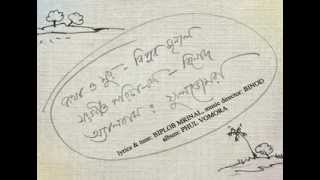 কথা ও সুর - বিপ্লব মৃনাল
সঙ্গীত পরিচালনা - বিনোদ
অ্যালবাম : ফুলভোমরা
lyrics & tune: BIPLOB MRINAL, music director: BINOD
album: PHUL VOMORA